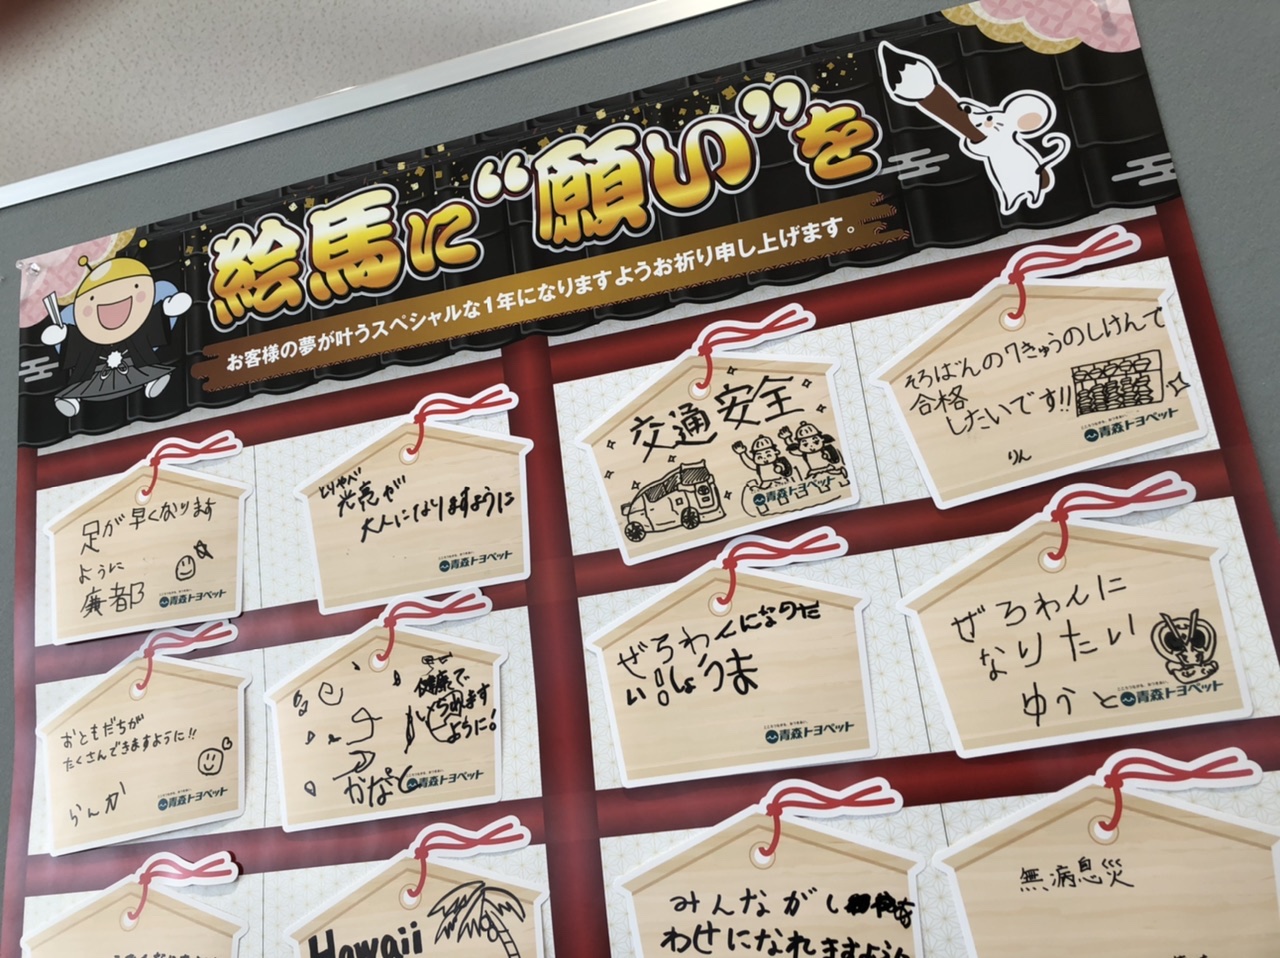 絵馬に“願い”を
お客様の夢が叶うスペシャルな1年になりますようお祈り申し上げます。
足が早くなります
ように
青森トヨペット
とりやべ
光売が
大人になりますように
青森トヨペット
交通安全
青森トヨペット
そろばんの7きゅうのしけんで
合格
したいです!!
りん
青森トヨペット
おともだちが
たくさんできますように!!
らんか
青森トヨペット
健康で
ますます
ように!
かなと
青森トヨペット
ぜろわんになりた
い!!しょうま
青森トヨペット
ぜろわんに
なりたい
ゆうと
青森トヨペット
Hawaii
みんながし
わせになれますように
無病息災